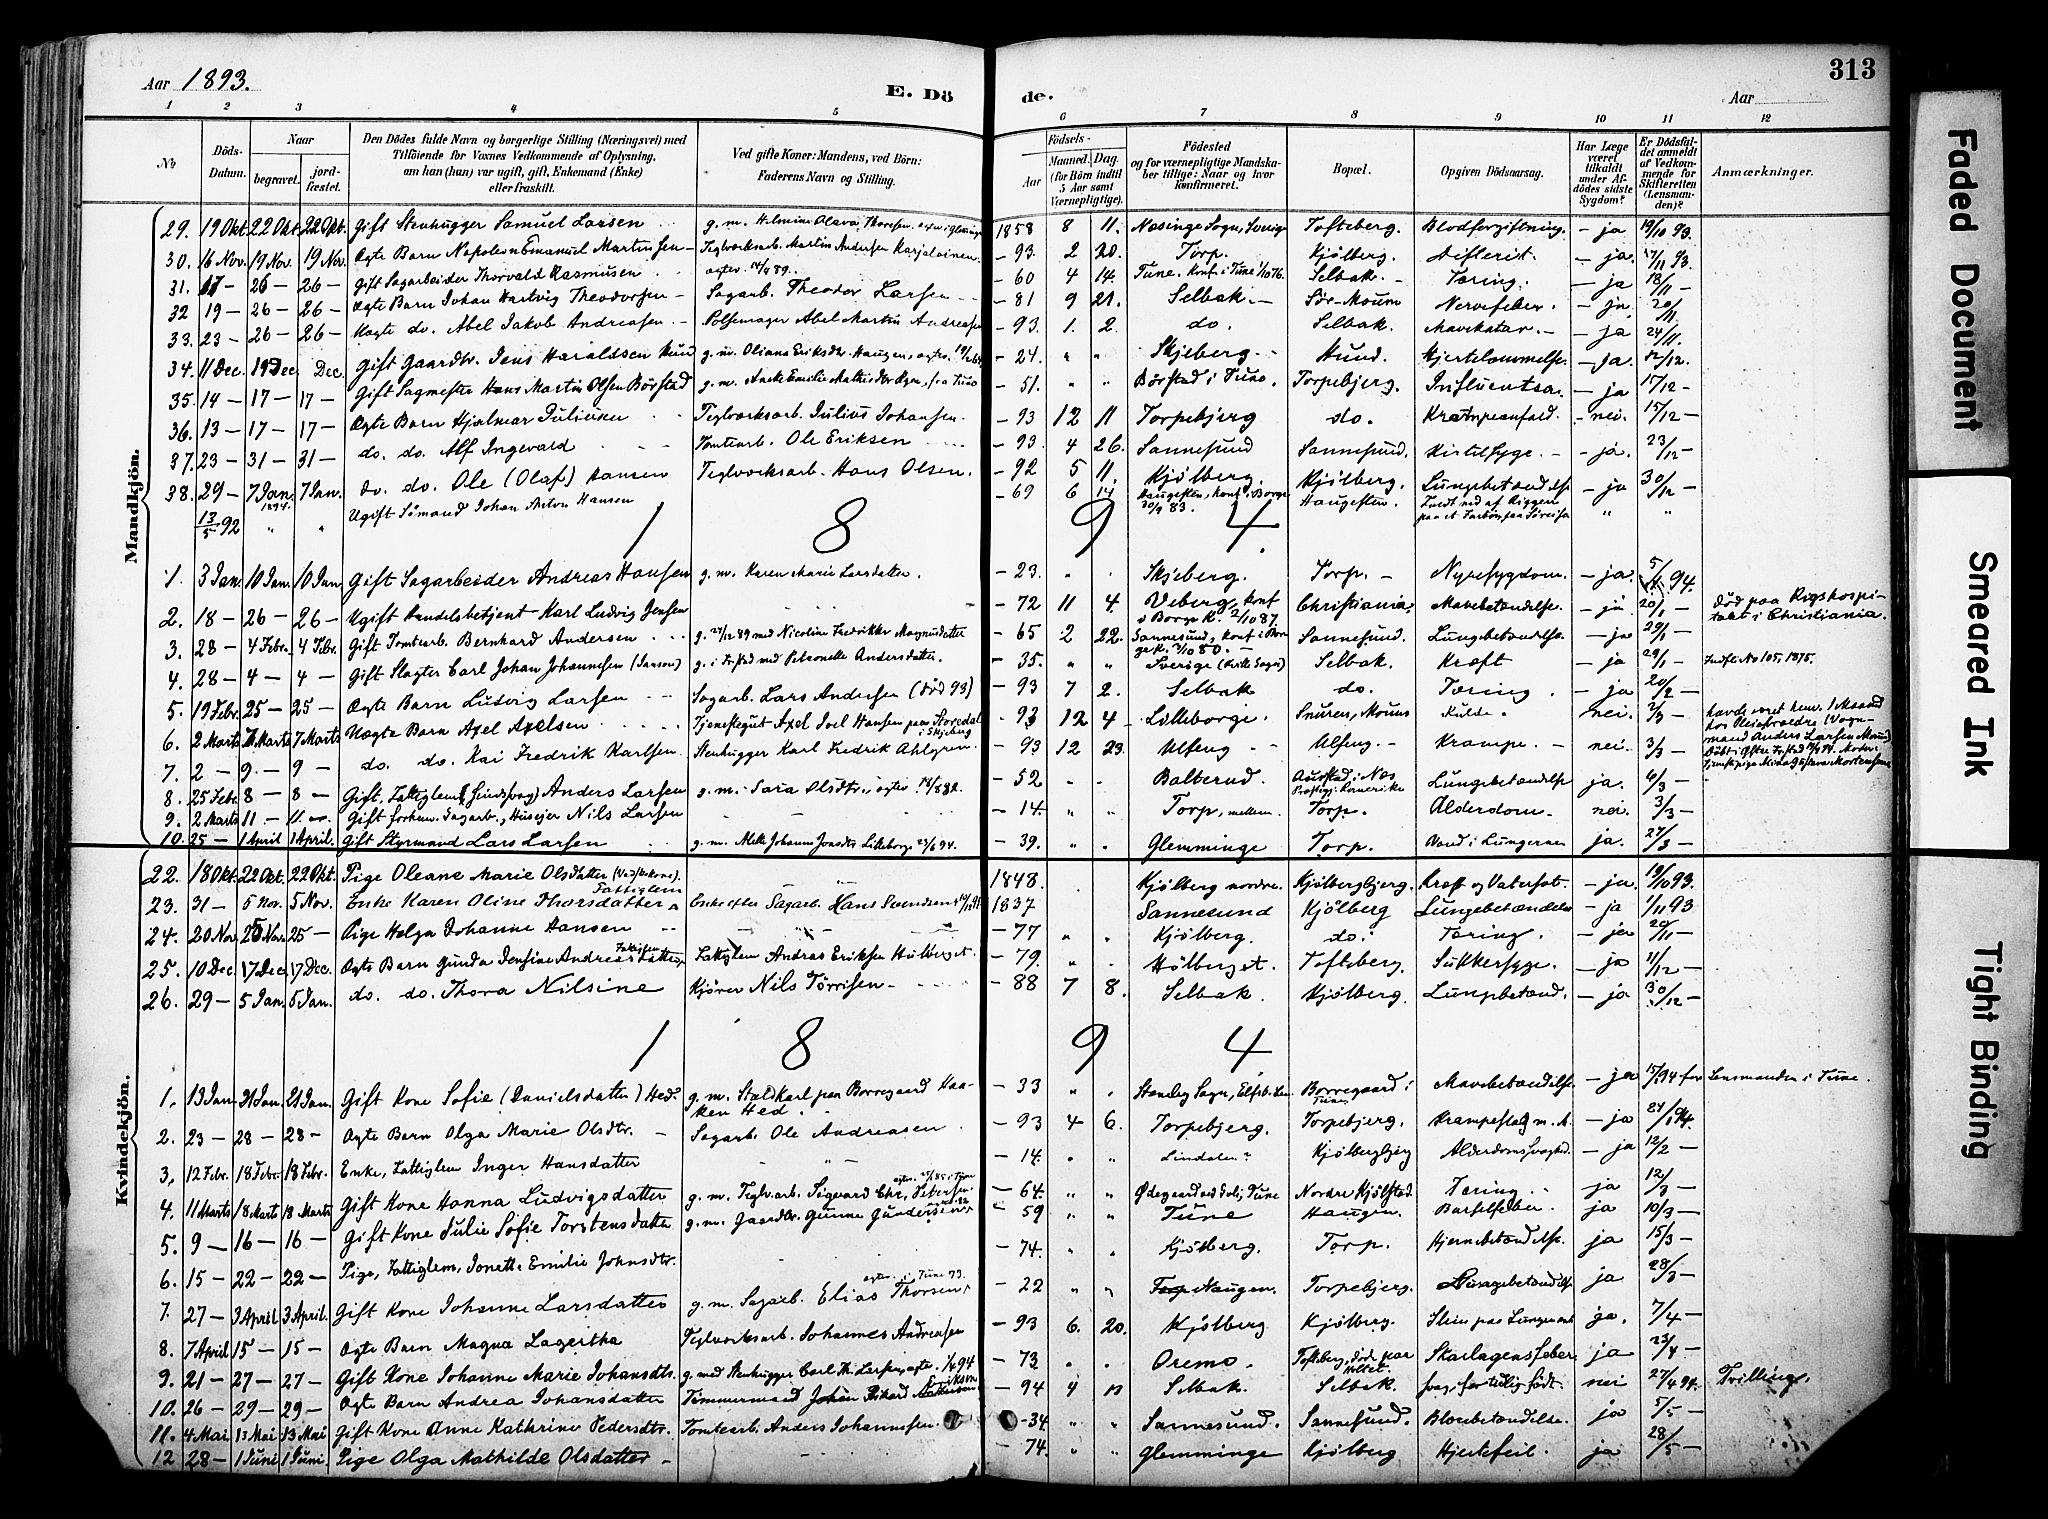 Aar 1893. E. Dö de. Aar 313
1 2 3 4 5 6 7 8 9 10 11 12
No Döds-Datum. Naar begravet. jordfæstet. Den Dödes fulde Navn og borgerlige Stilling (Næringsvei) med Tilföiende for Voxnes Vedkommende af Oplysning, om han (hun) var ugift, gift, Enkemand (Enke) eller fraskilt. Ved gifte Koner: Mandens, ved Börn: Faderens Navn og Stilling. Födsels- Aar Maaned. Dag. (for Börn indtil 5 Aar samt Værnepligtige). Födested og for værnepligtige Mandskaber tillige: Naar og hvor konfirmeret. Bopæl. Opgiven Dödsaarsag. Har Læge været tilkaldt under Afdödes sidste Sygdom? Er Dödsfaldet anmeldt af Vedkommende for Skifteretten (Lensmanden)? Anmærkninger.
Mandkjön.
29. 19 Okt. 22 Okt. 22 Okt. Gift Stenhugger Samuel Larsen 1858 8 11. Næsinge Sogn, Sverige Tofteberg. Blodforgiftning. - ja 19/10 93.
30. 16 Nov. 19 Nov. 19 Nov. Ægte Barn Napoleon Emanuel Martinsen - Teglværksarb. Martin Andersen - 93. 2 20. Torp. Kjölberg. Difterit. - ja. 17/11 93.
31. 17 - 26 - 26 - Gift Sagarbeider Thorvald Rasmusen - 60 4 14. Tune. Konf. i Tune 1/10 76. Selbak. Tæring. - ja 18/11 -
32 19 - 26 - 26 - Ægte Barn Johan Hartvig Theodorsen - Sagarb. Theodor Larsen - 81 9 21. Selbak. - Sör-Moum Nervefeber. - ja. 20/11
33. 23 - 26 - 26 - Uægte do. Abel Jakob Andreasen - Pölsemager Abel Martin Andreasen - 93. 1. 2. do. Selbak. Mavekatar. - ja 24/11.
34. 11 Dec. 19 Dec. Dec. Gift Gaardbr. Jens Haraldsen Hund g. m. Oliana Eriksdtr. Haugen, - 24. " " Skjeberg. - Hund. Hjertelammelse. - ja. 12/12.
35. 14 - 17 - 17 - Gift Sagmester Hans Martin Olsen Börstad - 51. " " Börstad i Tune. Torpebjerg. Influentsa. - ja 17/12 -
36. 13 - 17 - 17 - Ægte Barn Hjalmar Juliusen Teglværksarb. Julius Johansen. - 93 12 11 Torpebjerg do. Krampeanfald. - nei. 15/12 -
37. 23 - 31 - 31 - do. do. Alf Ingevald Tomtearb. Ole Eriksen - 93. 4 26. Sannesund Sannesund. - ja. 23/12 -
38. 29 - 7 Jan. 1894. 7 Jan. do. do. Ole (Olaf) Hansen Teglværksarb. Hans Olsen. - 92 5 11. Kjölberg. Kjölberg. Lungebetændelse - ja 30/12 -
13/5 92 " " Ugift Sömand Johan Anton Hansen - 69 6 14 Haugesten, konf. i Borge 30/9 83. Haugesten. " "
1 8 9 4.
1. 3 Jan. 10 Jan. 10 Jan Gift Sagarbeider Andreas Hansen g. m. Karen Marie Larsdatter. - 23. " . Skjeberg. Torp. - Nyresygdom. - ja. 5/1 94.
2. 18 - 26 - 26 - Ugift Handelsbetjent Karl Ludvig Jensen - 72 11 4 Veberg, konf. i Borge K. 2/10 87. Christiania. Mavebetændelse. - ja 20/1 - Död paa Rigshospitalet i Christiania.
3. 28 - 4 Febr. 4 Febr. Gift Tomtearb. Bernhard Andersen g. 27/12 89 med Nicoline Fredrikke Magnusdatter - 65 2 22. Sannesund, konf. i Borge K. 3/10 80. Sannesund. Lungebetændelse - ja 29/1 -
4. 28 - 4 - 4 - Gift Slagter Carl Johan Johannesen (Janson) g. i Frstad med Petronelle Andersdatter. - 35. " " Sverige Selbak. Kræft - ja 29/1 - Indfl. No 105, 1875.
5. 19 Febr. 25 - 25 - Ægte Barn Ludvig Larsen Sagarb. Lars Andersen (död 93) - 93 7 2. Selbak do. Tæring. - ja 20/2 -
6. 2 Marts 7 Marts 7 Marts Uægte Barn Axel Axelsen Tjenestegut Axel Joel Hansen paa Storedal i Skjeberg - 93 12 4 - Lilleborge. Snuren, Moum Kulde. nei. 2/3 -
7. 2 - 9 - 9 - do. do. Kai Fredrik Karlsen. Stenhugger Karl Fredrik Ahlgren. - 93 12 23. Ulfeng Ulfeng Krampe. nei. 3/3 -
8. 25 Febr. 8 - 8 - Gift, Fattiglem (Sindssvag) Anders Larsen g. m. Sara Olsdtr. - 52 " " Balterud. Lungebetændelse ja. 4/3 -
9. 2 Marts 11 - 11 - Gift forhenv. Sagarb., Huseier Nils Larsen - 14. " " Torp, mellem. Torp. Alderdom. nei. 3/3 -
10. 25 - 1 April 1 April. Gift Styrmand Lars Larsen - 39. " . Glemminge Torp. Vand i Lungerne ja. 27/3 -
Kvindekjön.
22. 18 Okt. 22 Okt. 22 Okt. Pige Oleane Marie Olsdatter 1848. Kjölberg nordre. Kjölbergbjerg. Kræft og Vatersot. - ja. 19/10 93.
23. 31 - 5 Nov. 5 Nov. Enke Karen Oline Thorsdatter Fattiglem Enke efter Sagarb. Hans Svendsen 1837 Sannesund Kjölberg Lungebetændelse - ja 1/11 93
24. 20 Nov. 25 Nov. 25 - Pige Helga Johanne Hansen - 77 " . Kjölberg. do. Tæring. - ja 20/11 -
25. 10 Dec. 17 Dec. 17 Dec. Ægte Barn Gunda Jensine Andreasdatter, Fattiglem Fattiglem Andreas Eriksen Hölberget. - 79. " . Hölberget. Tofteberg. Sukkersyge. - ja 11/12 -
26. 29 - 5 Jan. 5 Jan. do. do. Thora Nilsine Kjörer Nils Törrisen - 88 7 8. Selbak. Kjölberg. Lungebetænd. - ja 30/12 -
1 8 9 4
1. 13 Jan. 21 Jan. 21 Jan. Gift Kone Sofie (Danielsdatter) Hed. g. m. Staldkarl paa Borregaard Haaken Hed. - 33 " . Borregaard i Tune Mavebetændelse - ja Lensmanden i Tune.
2. 23 - 28 - 28 - Ægte Barn Olga Marie Olsdtr. - Sagarb. Ole Andreasen - 93 4 6. Torpebjerg. Torpebjerg. - ja 24/1 94.
3. 12 Febr. 18 Febr. 18 Febr. Enke, Fattiglem Inger Hansdatter - 14. " " Lindalen Kjölbergbjerg Alderdomssvaghed. - ja 12/2 -
4. 11 Marts 18 Marts 18 Marts Gift Kone Hanna Ludvigsdatter g. m. Teglv.arb. Sigvard Chr. Petersen - 64. " " Nordre Kjölstad. Tæring. ja 12/3 -
5. 9 - 16 - 16 - Gift Kone Julie Sofie Torstensdatter g. m. Gaardbr. Gunne Gundersen - 59 " " Tune Haugen. Barselfeber. ja 10/3 -
6. 15 - 22 - 22 - Pige, Fattiglem, Jonette Emilie Johnsdtr. - 74. " " Kjölberg. Torp. Hjernebetændelse. ja 15/3 -
7. 27 - 3 April 3 April. Gift Kone Johanne Larsdatter g. m. Sagarb. Elias Thorsen - 22 " " Haugen. Torpebjerg. Lungebetændelse ja 28/3 -
8. 7 April 15 - 15 - Ægte Barn Magna Lagertha Teglværksarb. Johannes Andreasen - 93 6. 20. Kjölberg Kjölberg. ja. 7/4 -
9. 21 - 27 - 27 - Gift Kone Johanne Marie Johansdtr. - 73 " . Oremo. Skarlagensfeber ja 23/4 -
10. 26 - 29 - 29 - Ægte Barn Andrea Johansdatter Tömmermand Johan - 94 4 Selbak. Selbak. Svag, for tidlig födt. nei 27/4 94. Tvilling.
11. 4 Mai 13 Mai 13 Mai Gift Kone Anne Kathrine Pedersdtr. Tomtearb. Anders Johannesen. - 34 " " Sannesund. Sannesund. Blærebetændelse. ja 5/5 -
12 28 - 1 Juni 1 Juni. Pige Olga Mathilde Olsdatter - - 74. " " Glemminge Kjölberg Hjertefeil. ja 28/5 -
Faded Document
Smeared Ink
Tight Binding